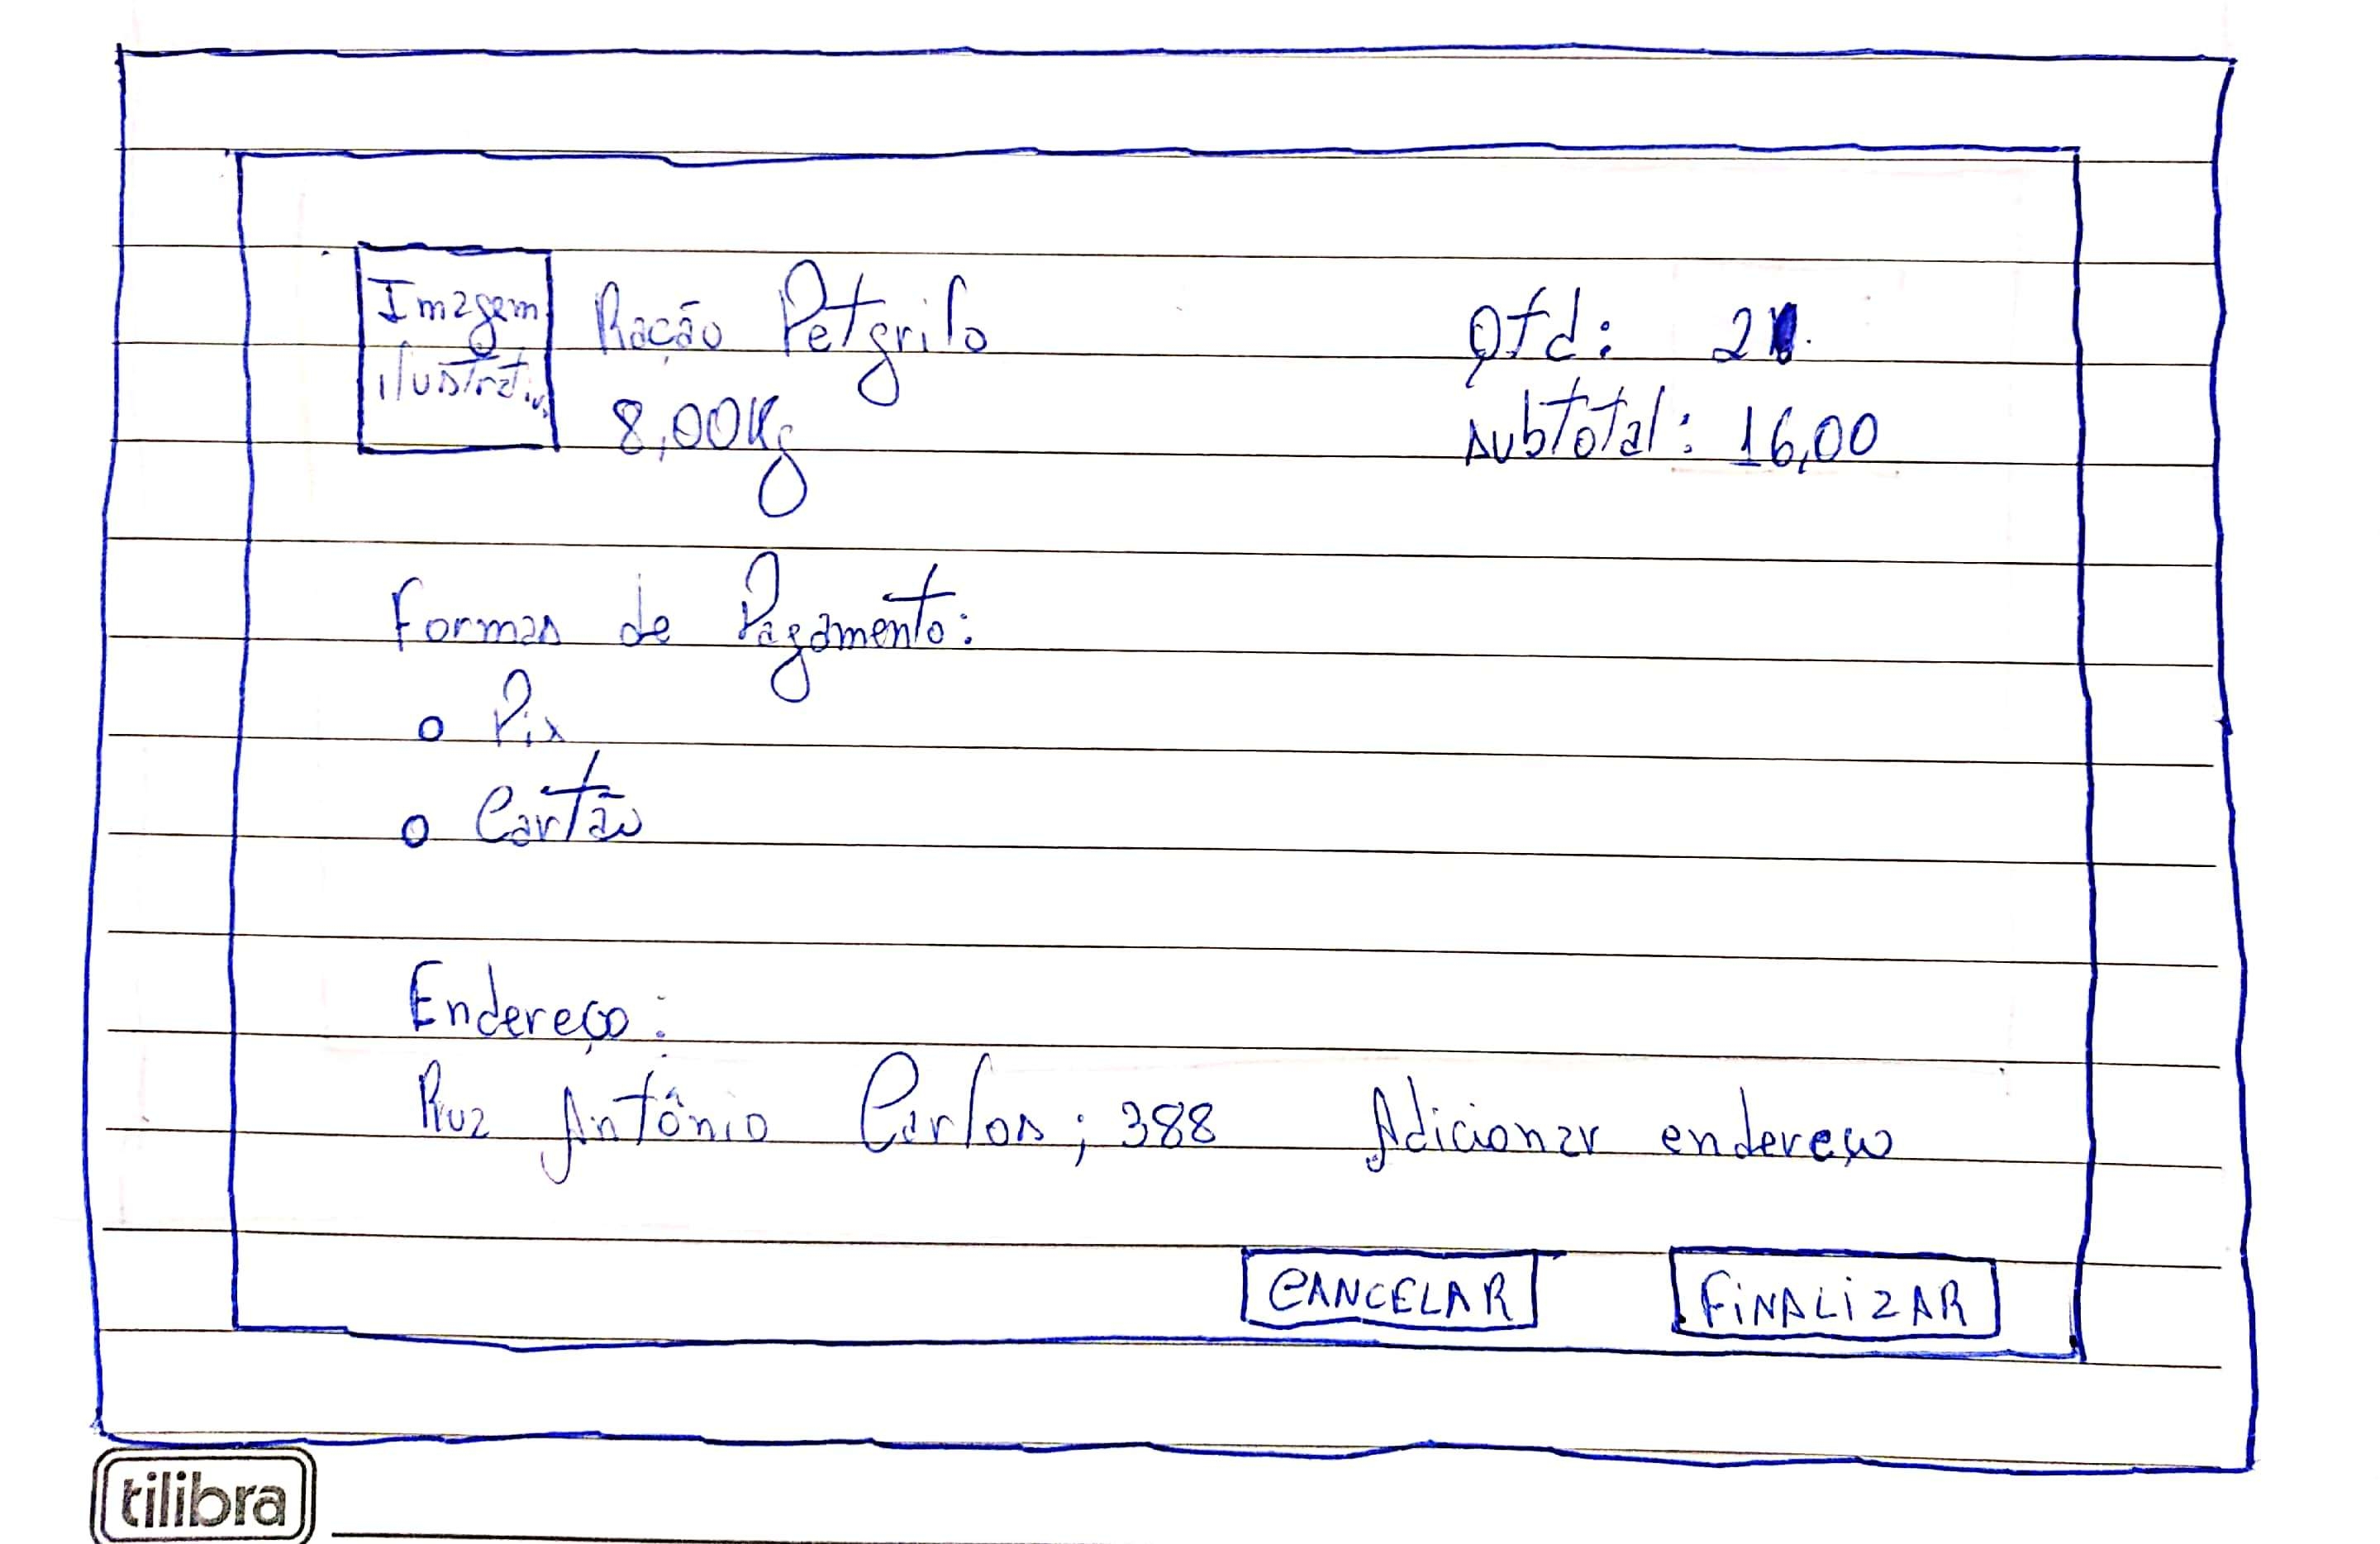 Imagem
ilustrativa
Ração Petgrilo
8,00Kg
Qtd: 2
subtotal: 16,00
Formas de Pagamento:
o Pix
o Cartão
Endereço:
Rua Antônio Carlos; 388 Adicionar endereço
CANCELAR FINALIZAR
tilibra